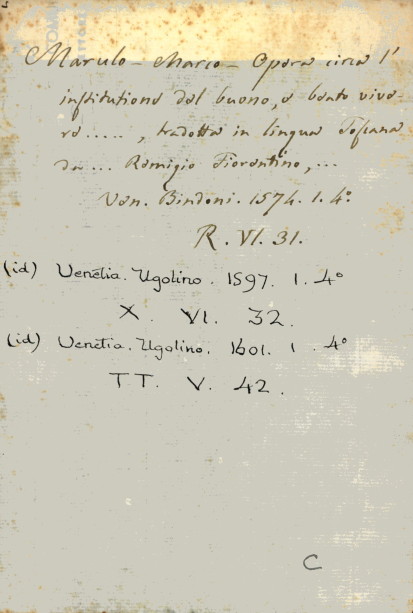 Marulo - Marco - Opera circa l'
institutione del buono, e beato vive-
re....., tradotta in lingua Toscana
da ... Remigio Fiorentino, ...
Ven. Bindoni. 1574. 1. 4°.
R. VI. 31.
(id) Venetia. Ugolino. 1597. 1. 4°
X. VI. 32.
(id) Venetia. Ugolino. 1601. 1. 4°
TT. V. 42.
C